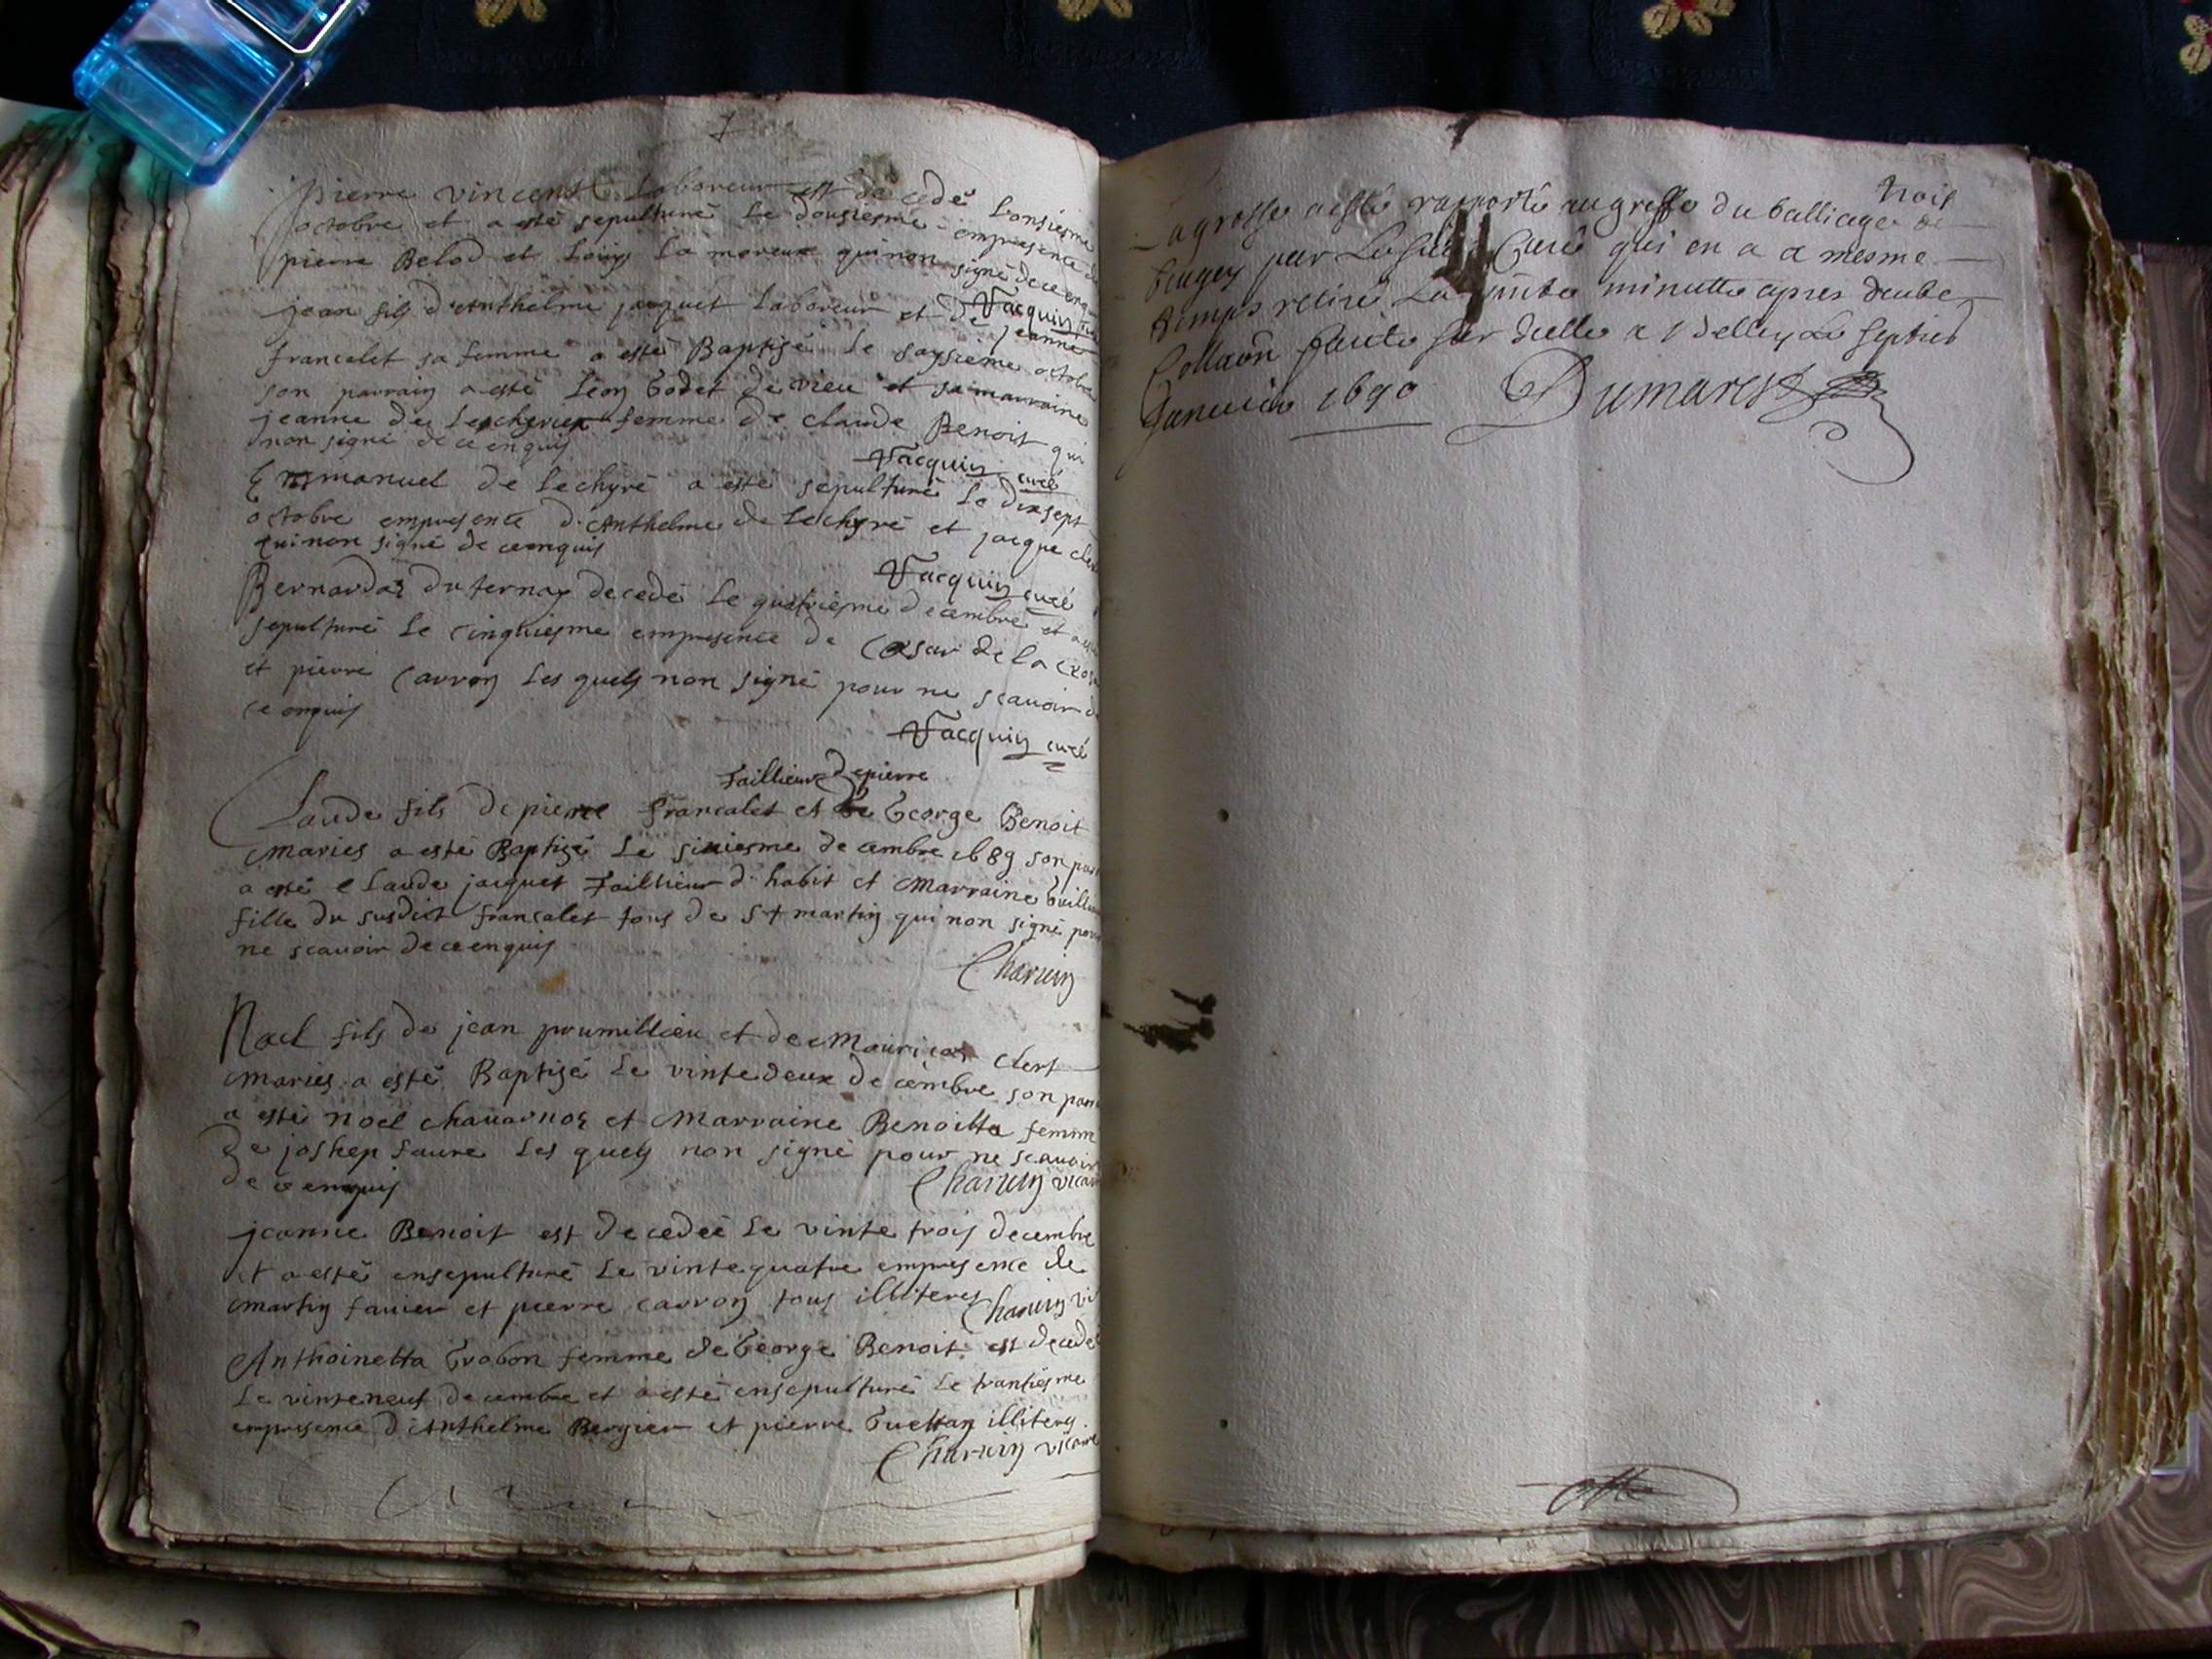 pierre vincent Laboreur est decedé Lonsiesme
octobre et a esté sepulturé Le dousiesme empresence de
pierre Belod et Louys La moreux quinon signé de ce enquis
Jacquin curé
jean fils d'Anthelme jacquet Laboreur et de jeanne
francalet sa femme a esté Baptisé Le saysieme octobre
son parrain a esté Leon Godet de vieu et sa marraine
jeanne de Lescherieux femme de claude Benoit qui
non signé de ce enquis
Jacquin curé
Emmanuel de Lechyré a esté sepulturé Le dixsept
octobre empresence d'Anthelme de Lechyré et jacque
quinon signé de ce enquis
Jacquin curé
Bernarda du ternay decedé Le quatriesme decembre et a
sepulturé Le cinquiesme empresence de Cæsar de la
et pierre Carron Les quels non signé pour ne scavoir de
ce enquis
Jacquin curé
Taillieur de pierre
Claude fils de pierre francalet et de George Benoit
maries a esté Baptisé Le sixiesme decembre 1689 son
a esté Claude jacquet Taillieur d'habit et marraine
fille du susdict francalet tous de St martin qui non signé pour
ne scavoir de ce enquis
Charvin
Noel fils de jean poumillieu et de Maurica Clert
maries a esté Baptisé Le vinte deux decembre son
a esté noel chavarnoz et Marraine Benoitta femme
de joshep faure Les quels non signé pour ne scavoir
de ce enquis
Charvin vicaire
jeanne Benoit est decedeé Le vinte trois decembre
et a esté ensepulturé Le vinte quatre empresence de
martin favier et pierre carron tous illiteres
Charvin vi
Anthoinetta Trabon femme de George Benoit est decedé
Le vinteneuf decembre et a esté ensepulturé Le trantiesme
empresence d'Anthelme Bergier et pierre Guettan illiteres.
Charvin vicaire
La grosse a esté rapporté au greffe du balliage de
bugey par Le Curé qui en a a mesme
temps retiré La minutte apres deube
Collaon faicte sur dicelle a Belley Le septies
Janvier 1690 Dumarest